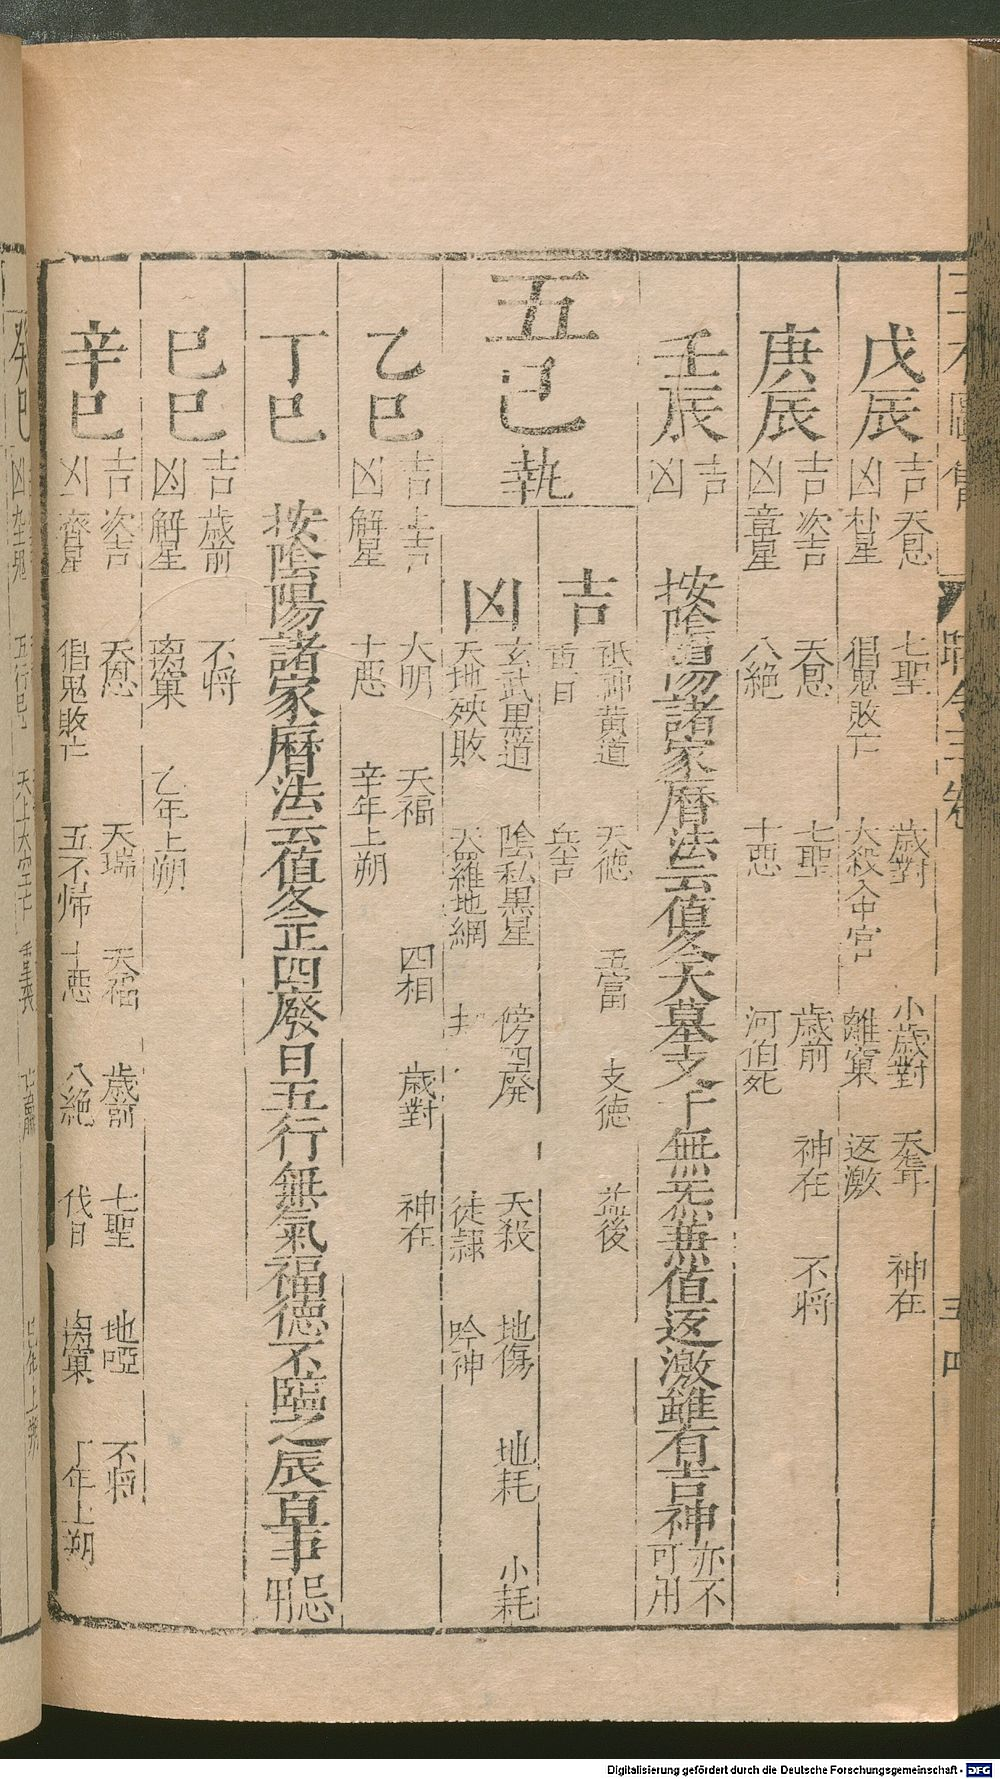 戊辰
吉 天恩 七聖 歲對 小歲對 天聾 神在
凶 朴星 倡鬼敗亡 大殺入中宮 離窠 返激
庚辰
吉 次吉 天恩 七聖 歲前 神在 不將
凶 章星 八絕 十惡 河伯死
壬辰
吉
凶
按陰陽諸家曆法云值冬天墓支干無炁兼值返激雖有吉神亦不可用
五巳執
吉
祗神黃道 天德 五富 支德 益後
重日 兵吉
凶
玄武黑道 陰私黑星 傍四廢 天殺 地傷 地耗 小耗
天地殃敗 天羅地網 徒隸 吟神
乙巳
吉 上吉 大明 天福 四相 歲對 神在
凶 解星 十惡 辛年上朔
丁巳
按陰陽諸家曆法云值冬正四廢日五行無氣福德不臨之辰百事忌用
己巳
吉 歲前 不將
凶 解星 离窠 乙年上朔
辛巳
吉 次吉 天恩 天瑞 天福 歲前 七聖 地啞 不將
凶 齊星 倡鬼敗亡 五不歸 十惡 八絕 伐日 离窠 丁年上朔
癸巳
Digitalisierung gefördert durch die Deutsche Forschungsgemeinschaft - DFG